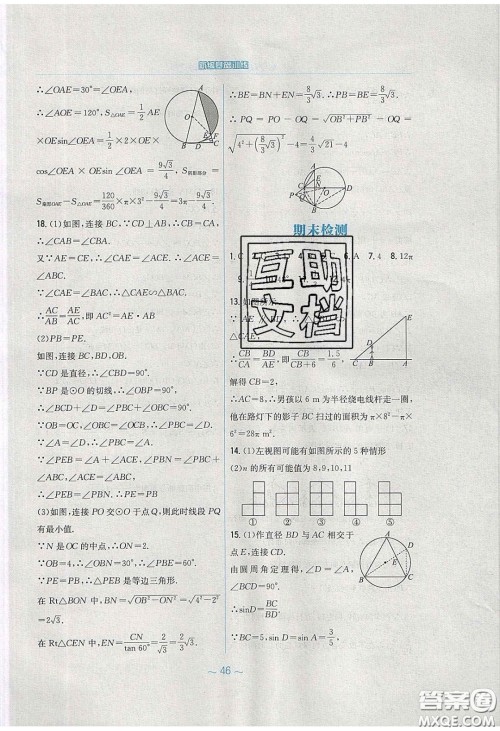 新编基础训练
∴∠OAE=30°=∠OEA，
∴∠AOE=120°，S△OAE=1/2 AE
×OEsin∠OEA=1/2×2×OE×
cos∠OEA×OEsin∠OEA=9√3/4，S阴影部分=
S扇形OAE－S△OAE=120/360×π×3²－9√3/4=3π－9√3/4.
18. (1)如图，连接BC，∵CD⊥AB，∴CB=CA，
∴∠CAB=∠CBA.
又∵AE=CE，∴∠CAE=∠ACE.
∴∠ACE=∠ABC，∴△AEC∽△BAC.
∴AC/AB=AE/AC，即AC²=AE·AB.
(2)PB=PE.
如图，连接BD，OB.
∵CD是直径，∴∠CBD=90°.
∵BP是⊙O的切线，∴∠OBP=90°.
∴∠BCD+∠D=∠PBC+∠OBC=90°.
∵OB=OC，∴∠OBC=∠OCB.
∴∠PBC=∠D.
∵∠A=∠D，∴∠PBC=∠A.
∵∠PEB=∠A+∠ACE，∠PBN=∠PBC+
∠ABC，∠ACE=∠ABC，
∴∠PEB=∠PBN. ∴PB=PE.
(3)如图，连接PO交⊙O于点Q，则此时线段PQ
有最小值.
∵N是OC的中点，∴ON=2.
∵OB=4，∴∠OBN=30°，∴∠PBE=60°.
∵PE=PB，∴△PEB是等边三角形.
在Rt△BON中，BN=√(OB²－ON²)=√(4²－2²)
=2√3.
在Rt△CEN中，EN=CN/tan 60°=2/√3=2/3√3.
∴BE=BN+EN=8/3√3. ∴PB=BE=8/3√3.
∴PQ=PO－OQ=√(OB²+PB²)－OQ=
√(4²+(8/3√3)²)－4=4/3√21－4
期末检测
7. 4 8. 12π
互助文档
13. 如图所示
∴CB/CA=BD/AE，即CB/(CB+6)=1.5/6
解得CB=2，
∴AC=8，∴男孩以6 m为半径绕电线杆走一圈，
他在路灯下的影子BC扫过的面积为π×8²－π
×6²=28π m².
14. (1)左视图可能有如图所示的5种情形
(2)n的所有可能值为8，9，10，11
① ② ③ ④ ⑤
15. (1)作直径BD与AC相交于
点E，连接CD.
由圆周角定理得，∠D=∠A，
∠BCD=90°.
∴sinD=BC/BD.
∵BC=5，sin D=sin A=3/5，
～46～
答案圈
MXQE.COM